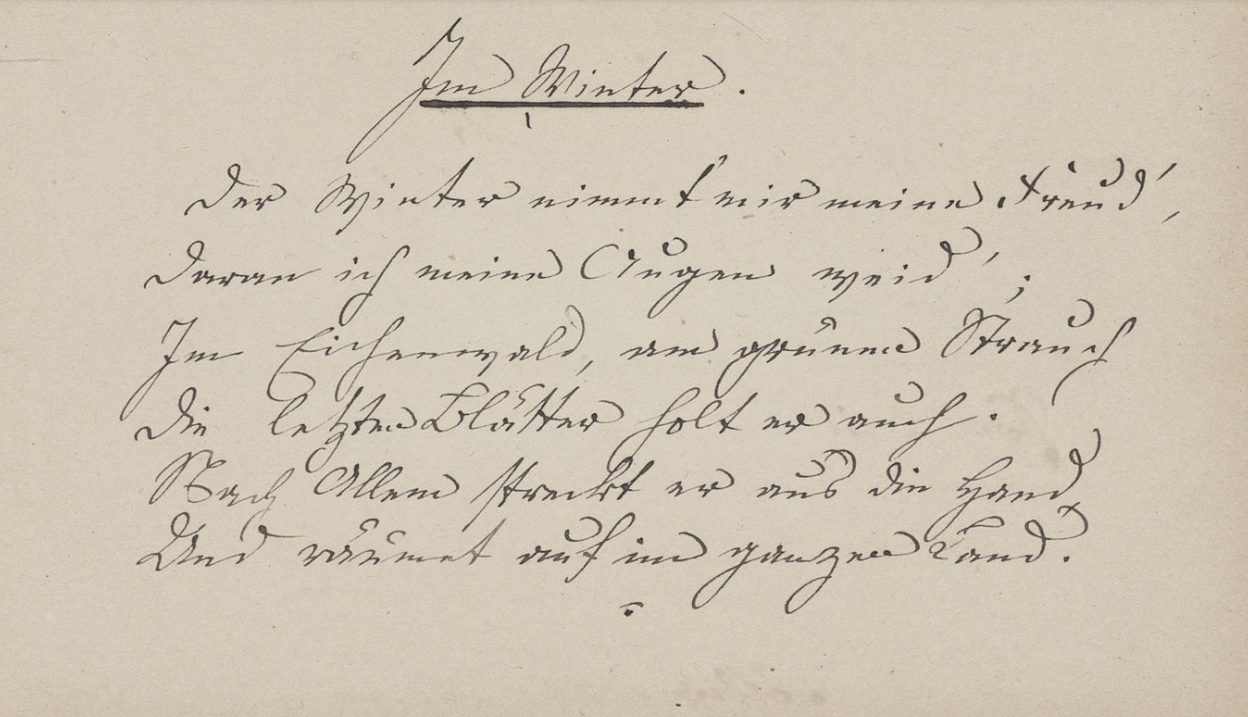 Im Winter.
Der Winter nimmt mir meine Freud',
Daran ich meine Augen weid';
Im Eichenwald, am grünen Strauch
Die letzten Blätter holt er auch.
Nach Allem streckt er aus die Hand,
Und räumet auf im ganzen Land.